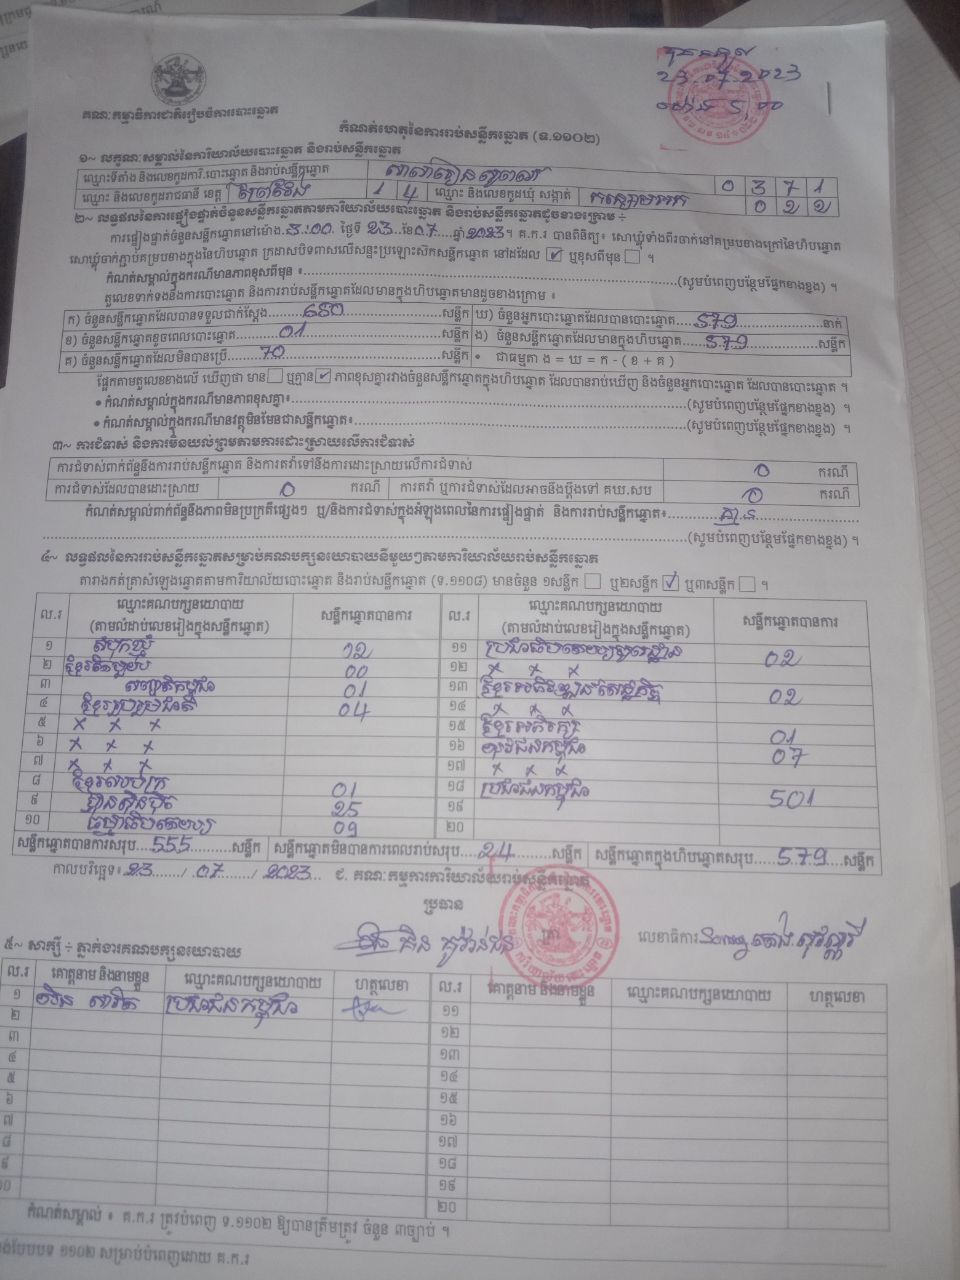 គណៈកម្មាធិការជាតិរៀបចំការបោះឆ្នោត
23.07.2023
កំណត់ហេតុនៃការរាប់សន្លឹកឆ្នោត (ទ.១១០២)
១~ លក្ខណៈសម្គាល់នៃការិយាល័យបោះឆ្នោត និងរាប់សន្លឹកឆ្នោត
ឈ្មោះទីតាំង និងលេខកូដការិ.បោះឆ្នោត និងរាប់សន្លឹកឆ្នោត 0 3 7 1
ឈ្មោះ និងលេខកូដរាជធានី ខេត្ត ព្រៃវែង 1 4 ឈ្មោះ និងលេខកូដឃុំ សង្កាត់ 0 2 2
២~ លទ្ធផលនៃការផ្ទៀងផ្ទាត់ចំនួនសន្លឹកឆ្នោតតាមការិយាល័យបោះឆ្នោត និងរាប់សន្លឹកឆ្នោតដូចខាងក្រោម ÷
ការផ្ទៀងផ្ទាត់ចំនួនសន្លឹកឆ្នោតនៅម៉ោង 3:00 ថ្ងៃទី 23 ខែ 07 ឆ្នាំ 2023។ គ.ក.រ បានពិនិត្យ៖ សោឃ្លុំទាំងពីរចាក់នៅគម្របខាងក្រៅនៃហិបឆ្នោត
សោឃ្លុំចាក់ភ្ជាប់គម្របខាងក្នុងនៃហិបឆ្នោត ក្រដាសបិទពាសលើសន្ទះប្រឡោះស៊កសន្លឹកឆ្នោត នៅដដែល ☑ ឬខុសពីមុន ☐ ។
កំណត់សម្គាល់ក្នុងករណីមានភាពខុសពីមុន ៖ (សូមបំពេញបន្ថែមផ្នែកខាងខ្នង) ។
តួលេខទាក់ទងនឹងការបោះឆ្នោត និងការរាប់សន្លឹកឆ្នោតដែលមានក្នុងហិបឆ្នោតមានដូចខាងក្រោម ៖
ក) ចំនួនសន្លឹកឆ្នោតដែលបានទទួលជាក់ស្តែង 650 សន្លឹក ឃ) ចំនួនអ្នកបោះឆ្នោតដែលបានបោះឆ្នោត 579 នាក់
ខ) ចំនួនសន្លឹកឆ្នោតខូចពេលបោះឆ្នោត 01 សន្លឹក ង) ចំនួនសន្លឹកឆ្នោតដែលមានក្នុងហិបឆ្នោត 579 សន្លឹក
គ) ចំនួនសន្លឹកឆ្នោតដែលមិនបានប្រើ 70 សន្លឹក • ជាធម្មតា ង = ឃ = ក - ( ខ + គ )
ផ្អែកតាមតួលេខខាងលើ ឃើញថា មាន ☐ ឬគ្មាន ☑ ភាពខុសគ្នារវាងចំនួនសន្លឹកឆ្នោតក្នុងហិបឆ្នោត ដែលបានរាប់ឃើញ និងចំនួនអ្នកបោះឆ្នោត ដែលបានបោះឆ្នោត ។
• កំណត់សម្គាល់ក្នុងករណីមានភាពខុសគ្នា៖ (សូមបំពេញបន្ថែមផ្នែកខាងខ្នង) ។
• កំណត់សម្គាល់ក្នុងករណីមានវត្ថុមិនមែនជាសន្លឹកឆ្នោត៖ (សូមបំពេញបន្ថែមផ្នែកខាងខ្នង) ។
៣~ ការជំទាស់ និងការមិនយល់ព្រមតាមការដោះស្រាយលើការជំទាស់
ការជំទាស់ពាក់ព័ន្ធនឹងការរាប់សន្លឹកឆ្នោត និងការតវ៉ាទៅនឹងការដោះស្រាយលើការជំទាស់ 0 ករណី
ការជំទាស់ដែលបានដោះស្រាយ 0 ករណី ការតវ៉ា ឬការជំទាស់ដែលអាចនឹងប្តឹងទៅ គឃ.សប 0 ករណី
កំណត់សម្គាល់ពាក់ព័ន្ធនឹងភាពមិនប្រក្រតីផ្សេងៗ ឬ/និងការជំទាស់ក្នុងអំឡុងពេលនៃការផ្ទៀងផ្ទាត់ និងការរាប់សន្លឹកឆ្នោត៖ គ្មាន
(សូមបំពេញបន្ថែមផ្នែកខាងខ្នង) ។
៤~ លទ្ធផលនៃការរាប់សន្លឹកឆ្នោតសម្រាប់គណបក្សនយោបាយនីមួយៗតាមការិយាល័យរាប់សន្លឹកឆ្នោត
តារាងកត់ត្រាសំឡេងឆ្នោតតាមការិយាល័យបោះឆ្នោត និងរាប់សន្លឹកឆ្នោត (ទ.១១០៨) មានចំនួន ១សន្លឹក ☐ ឬ២សន្លឹក ☑ ឬ៣សន្លឹក ☐ ។
ល.រ ឈ្មោះគណបក្សនយោបាយ (តាមលំដាប់លេខរៀងក្នុងសន្លឹកឆ្នោត) សន្លឹកឆ្នោតបានការ ល.រ ឈ្មោះគណបក្សនយោបាយ (តាមលំដាប់លេខរៀងក្នុងសន្លឹកឆ្នោត) សន្លឹកឆ្នោតបានការ
១ សំបុកឃ្មុំ 02 ១១ 02
២ 00 ១២ x x x
៣ 01 ១៣ 02
៤ ខ្មែររួបរួមជាតិ 04 ១៤ x x x
៥ x x x ១៥ 01
៦ x x x ១៦ យុវជនកម្ពុជា 07
៧ x x x ១៧ x x x
៨ 01 ១៨ ប្រជាជនកម្ពុជា 501
៩ ហ៊្វុនស៊ិនប៉ិច 25 ១៩
១០ ធម្មាធិបតេយ្យ 09 ២០
សន្លឹកឆ្នោតបានការសរុប 555 សន្លឹក សន្លឹកឆ្នោតមិនបានការពេលរាប់សរុប 24 សន្លឹក សន្លឹកឆ្នោតក្នុងហិបឆ្នោតសរុប 579 សន្លឹក
កាលបរិច្ឆេទ៖ 23 / 07 / 2023 ជ. គណៈកម្មការការិយាល័យរាប់សន្លឹកឆ្នោត
ប្រធាន
លេខាធិការ
៥~ សាក្សី ÷ ភ្នាក់ងារគណបក្សនយោបាយ
ល.រ គោត្តនាម និងនាមខ្លួន ឈ្មោះគណបក្សនយោបាយ ហត្ថលេខា ល.រ គោត្តនាម និងនាមខ្លួន ឈ្មោះគណបក្សនយោបាយ ហត្ថលេខា
១ ប្រជាជនកម្ពុជា ១១
២ ១២
៣ ១៣
៤ ១៤
៥ ១៥
៦ ១៦
៧ ១៧
៨ ១៨
៩ ១៩
១០ ២០
កំណត់សម្គាល់ ៖ គ.ក.រ ត្រូវបំពេញ ទ.១១០២ ឱ្យបានត្រឹមត្រូវ ចំនួន ៣ច្បាប់ ។
១១០២ សម្រាប់បំពេញដោយ គ.ក.រ